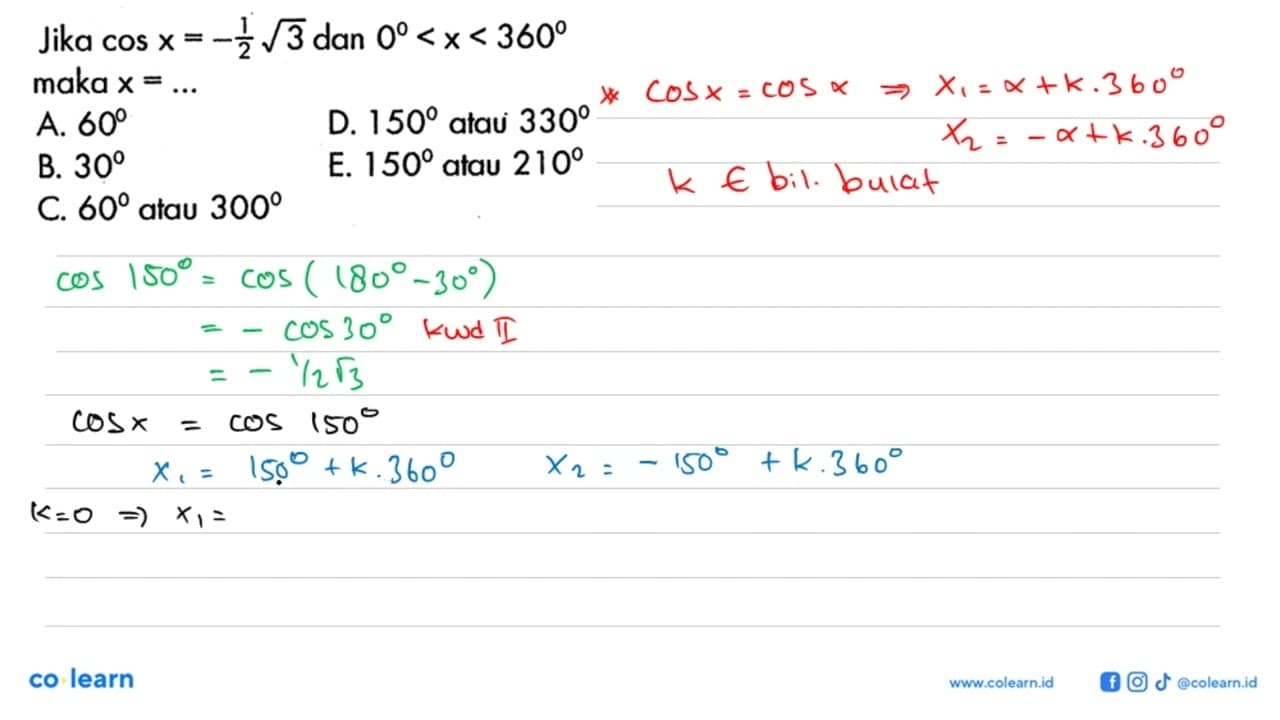 Jika cos x = -1/2 √3 dan 0⁰ < x < 360⁰
maka x = ...
A. 60⁰
B. 30⁰
C. 60⁰ atau 300⁰
D. 150⁰ atau 330⁰
E. 150⁰ atau 210⁰
* cos x = cos α ⇒ x₁ = α + k . 360⁰
x₂ = - α + k . 360⁰
k € bil. bulat
cos 150⁰ = cos ( 180⁰ - 30⁰ )
= - cos 30⁰ kwd II
= - 1/2 √3
cos x = cos 150⁰
x₁ = 150⁰ + k . 360⁰ x₂ = - 150⁰ + k . 360⁰
k = 0 ⇒ x₁ =
co learn
www.colearn.id @colearn.id